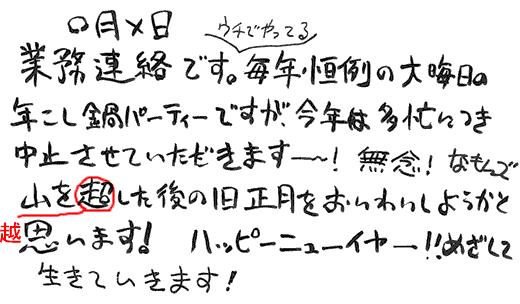 〇月×日
ウチでやってる
業務連絡です。毎年恒例の大晦日の
年こし鍋パーティーですが、今年は多忙につき
中止させていただきます〜〜！無念！なもんで
山を超した後の旧正月をおいわいしようかと
越
思います！ハッピーニューイヤー!!めざして
生きていきます！